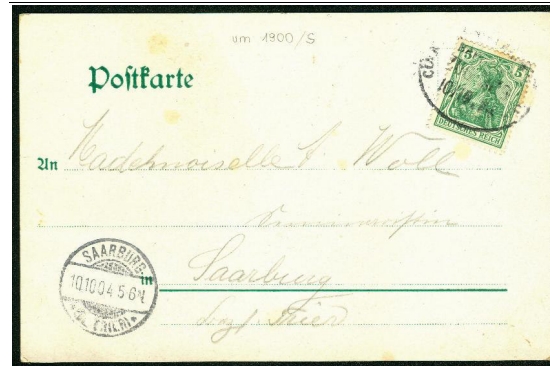 um 1900/S
Postkarte
5 5
DEUTSCHES REICH
An Mademoiselle Woll
in Saarburg
Bez. Trier
SAARBURG
10.10.04 5-6N
(BZ. TRIER)